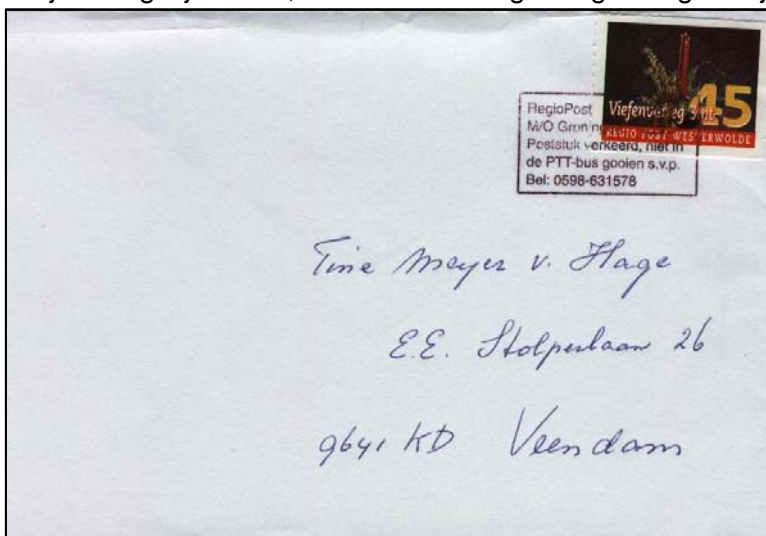 RegioPost
M/O Gronin
Poststuk verkeerd, niet in
de PTT-bus gooien s.v.p.
Bel: 0598-631578
Viefenvatteg Sint
45
REGIO POST WESTERWOLDE
Tine Meyer v. Hage
E.E. Stolperlaan 26
9641 KD Veendam